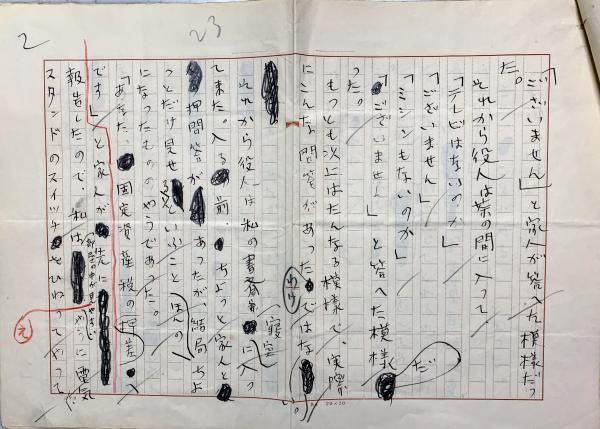 2
23
「ございません」と家人が答へた模様だつ
た。
それから役人は茶の間に入つて
「テレビはないのか」
「ございません」
「ミシンもないのか」
「ございません」と答へた模様だ
つた。
もつとも以上はたんなる模様で、実際
にこんな問答があつたわけではない。
それから役人は私の書斎兼寝室に入つ
て来た。入る前、ちよつと家人と
押問答があつたが、結局ちよ
つとだけ見せるといふことにほんの
になつたもののやうであつた。
「あなた、固定資産税の押差へ
です」と家人が先に
報告したので、私は部屋の中が見やすいやうに電気
スタンドのスイッチをひねつてやつて
え
20×20